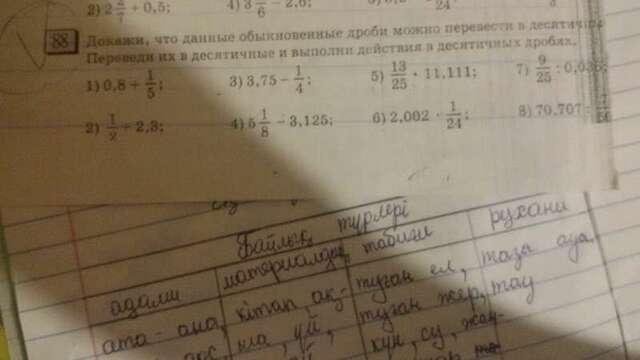 2) 2 2/7 + 0,5; 4) 3 /6 − 2,6;
88 Докажи, что данные обыкновенные дроби можно перевести в
Переведи их в десятичные и выполни действия в десятичных дробях.
1) 0,8 + 1/5; 3) 3,75 − 1/4; 5) 13/25 · 11,111; 7) 9/25 : 0,036;
2) 1/2 + 2,3; 4) 5 1/8 − 3,125; 6) 2,002 · 1/24; 8) 70,707 :
Байлық түрлері
адами материалдық табиғи рухани
ата - ана, кітап, ақ- туған ел, таза ауа,
ша, үй, туған жер, тау
күн, су, жау-